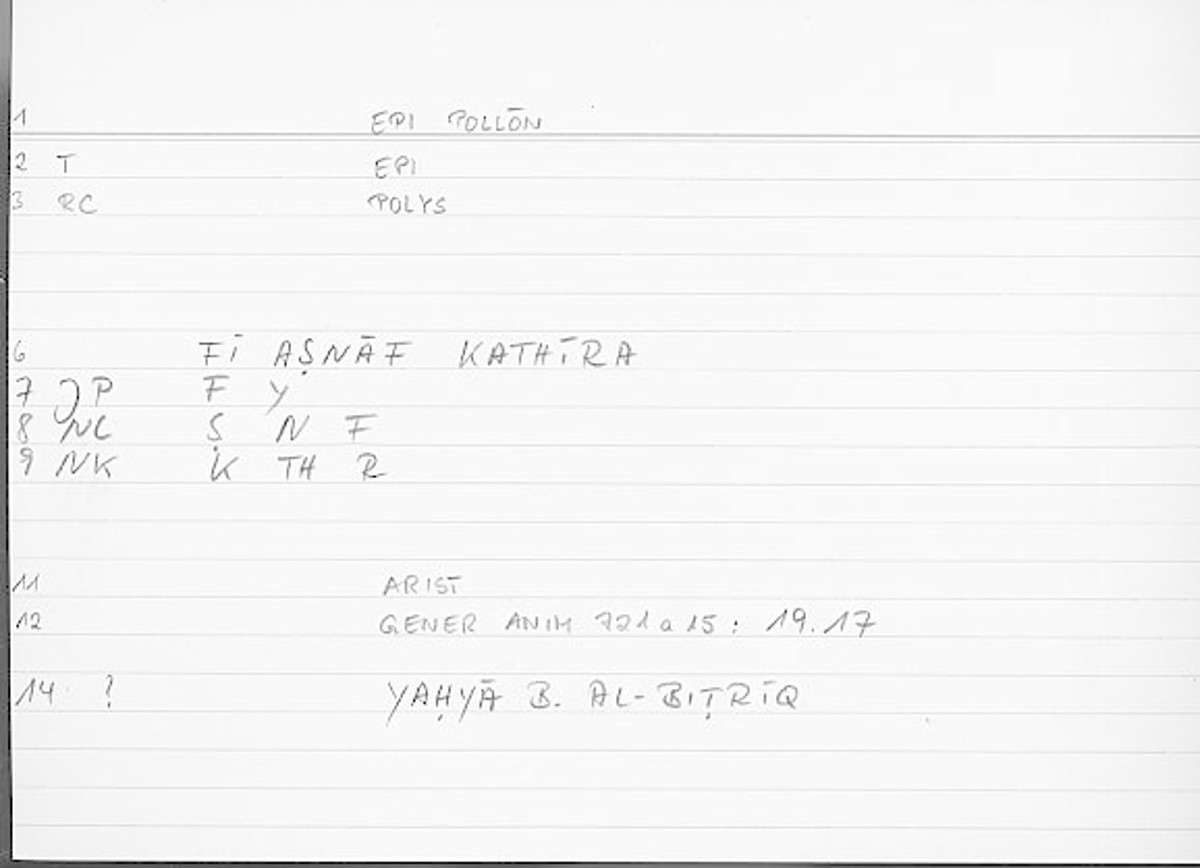 1 EPI POLLŌN
2 T EPI
3 RC POLYS
6 FĪ AṢNĀF KATHĪRA
7 P F Y
8 NC Ṣ N F
9 NK K TH R
11 ARIST
12 GENER ANIM 721a15: 19.17
14 ? YAḤYĀ B. AL-BIṬRĪQ